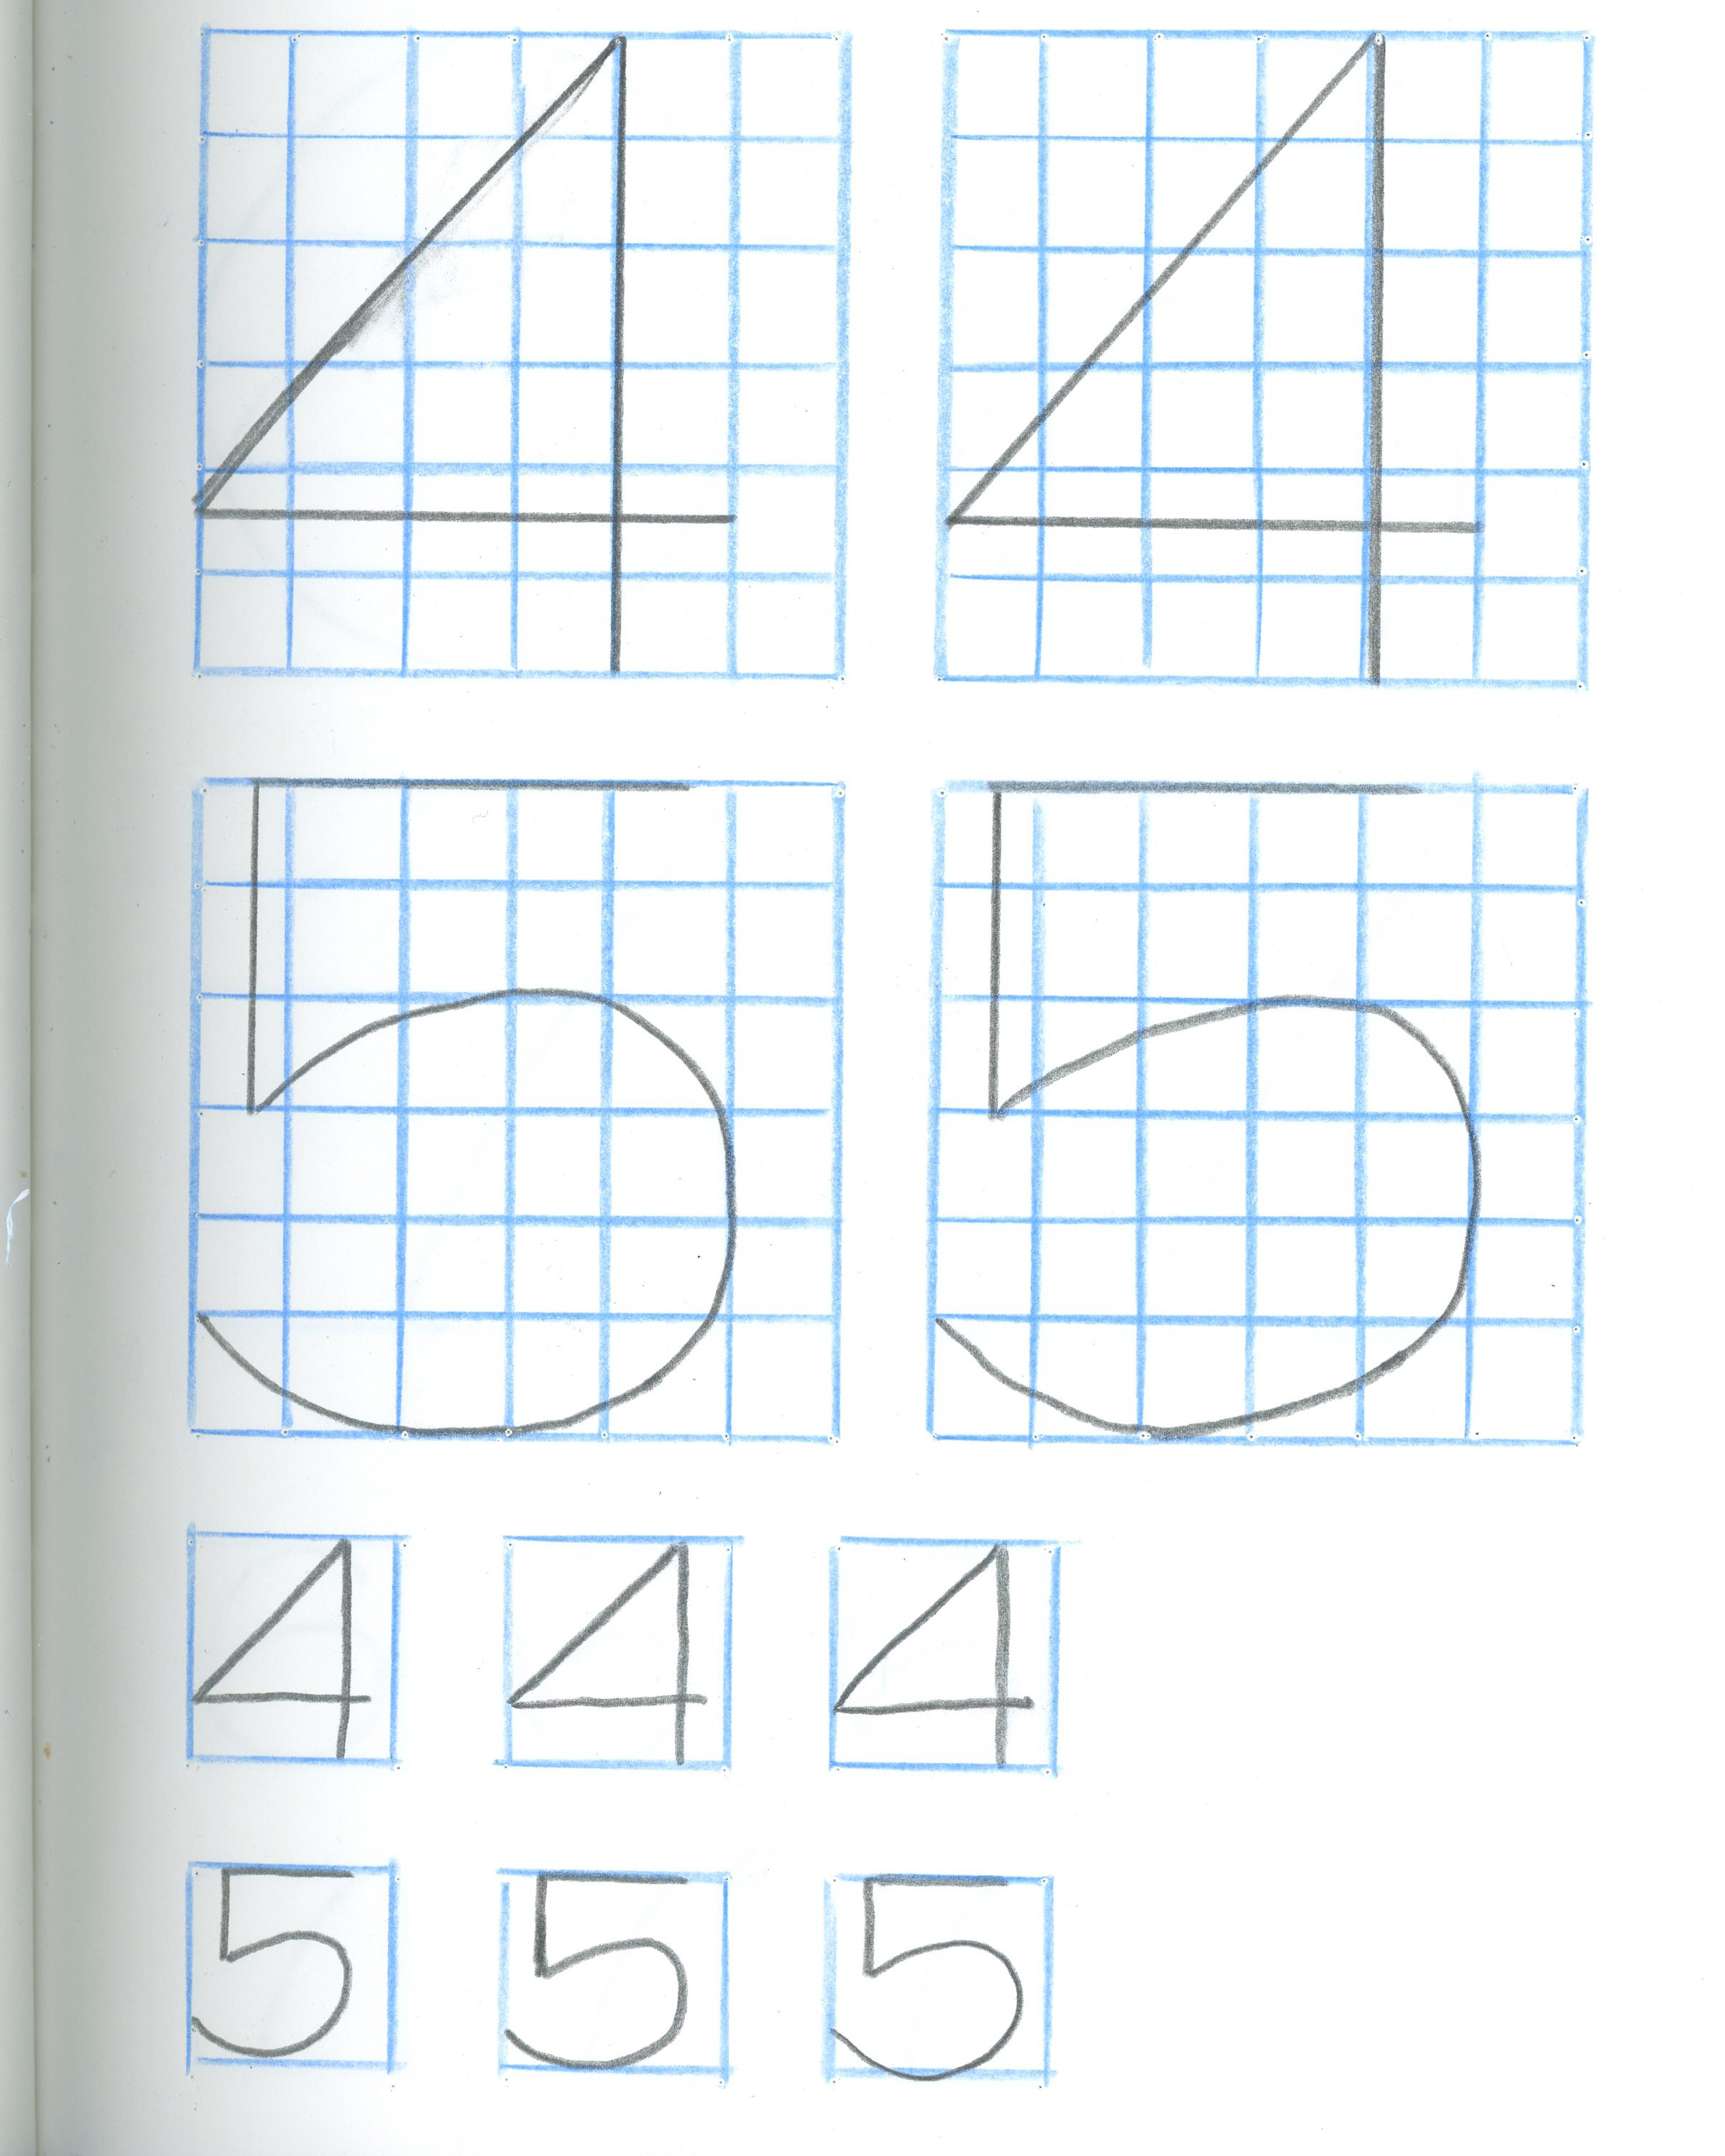 4 4
5 5
4 4 4
5 5 5